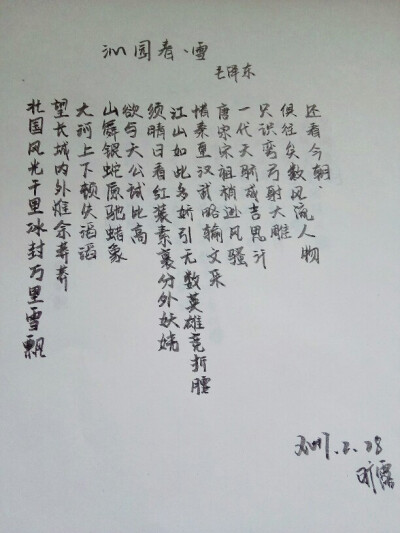 沁园春·雪
毛泽东
北国风光千里冰封万里雪飘
望长城内外惟余莽莽
大河上下顿失滔滔
山舞银蛇原驰蜡象
欲与天公试比高
须晴日看红装素裹分外妖娆
江山如此多娇引无数英雄竞折腰
惜秦皇汉武略输文采
唐宋宋祖稍逊风骚
一代天骄成吉思汗
只识弯弓射大雕
俱往矣数风流人物
还看今朝.
2017.2.28